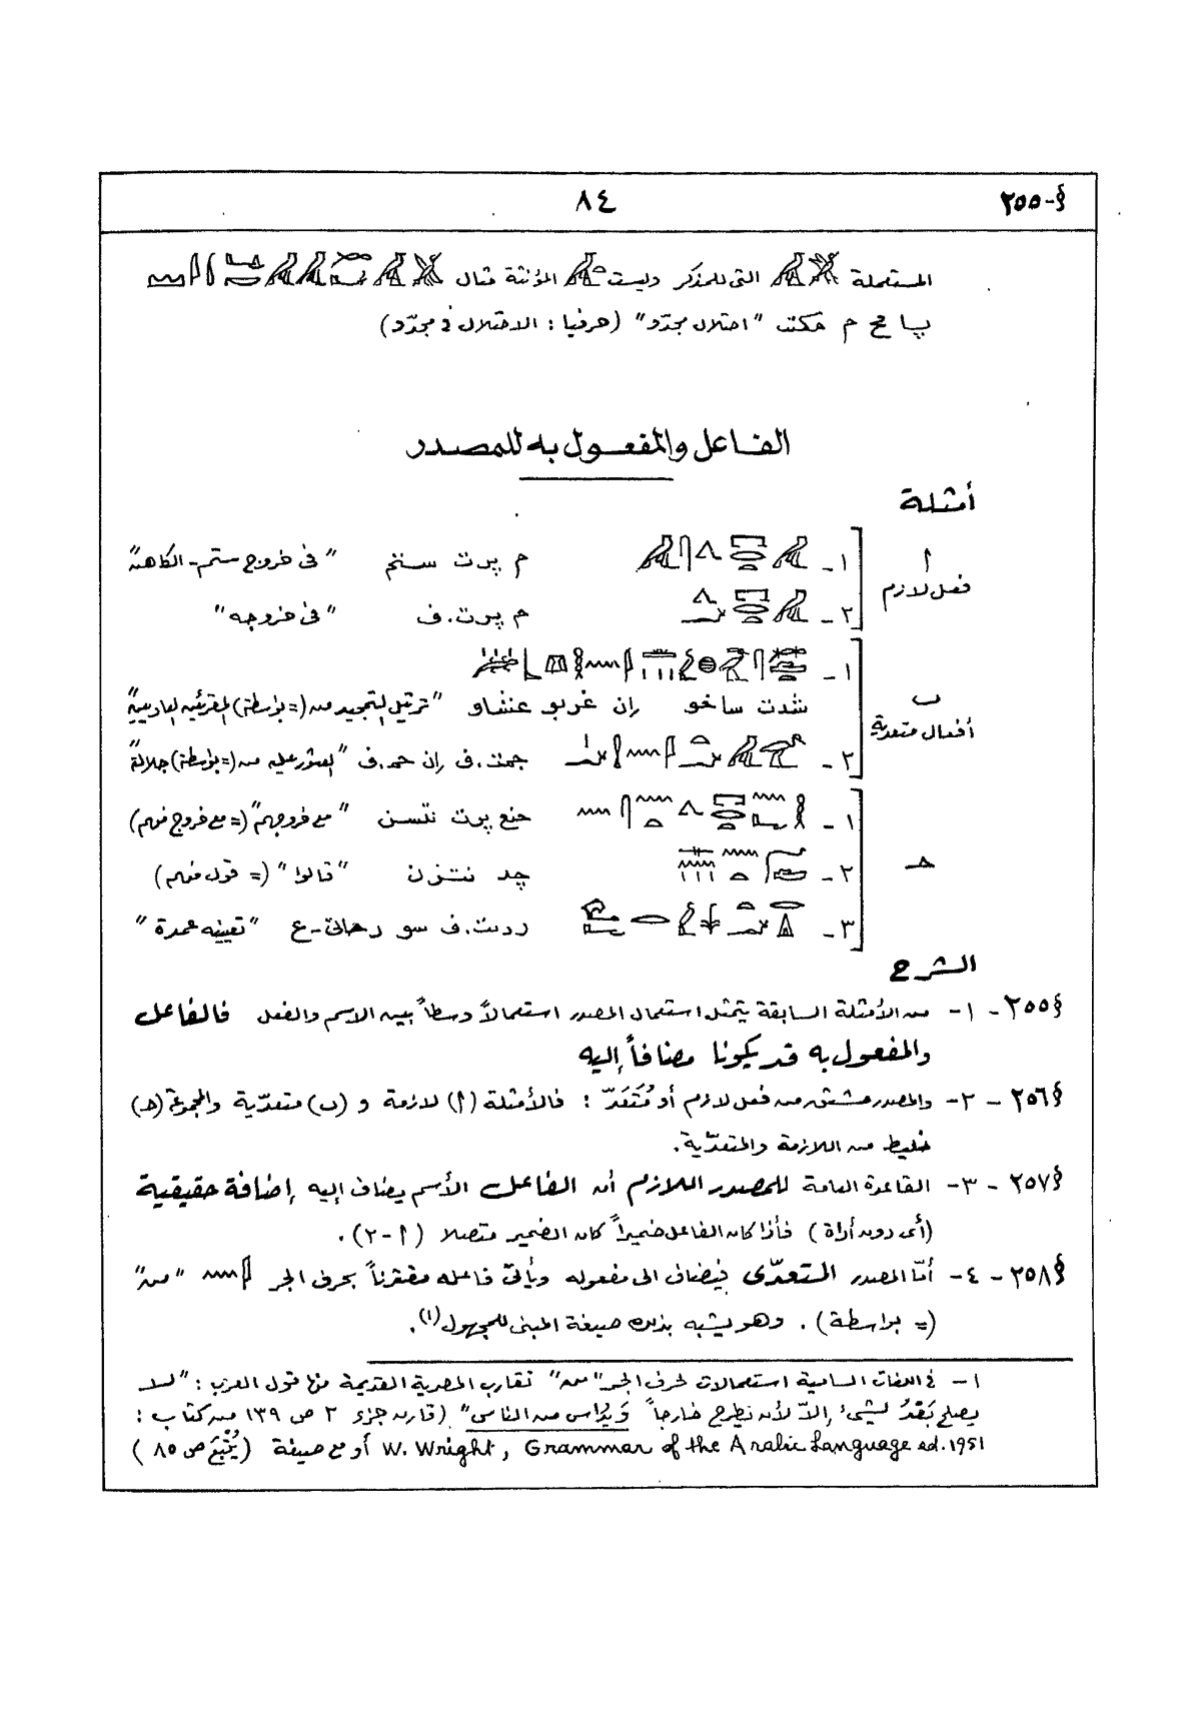 §-٢٥٥
٨٤
المستعملة التى للمذكر وليست المؤنثة مثال
م حكت "احتلال مجدّد" (حرفيا : الاحتلال فى مجدّو)
الفاعل والمفعول به للمصدر
أمثلة
أ
فعل لازم
١- م پرت ستم "فى خروج ستم-الكاهن"
٢- م پرت.ف "فى خروجه"
ب
أفعال متعدية
١-
شدت ساخو إن غربو عنشاو "ترتيل التمجيد من (=بواسطة) المقرئين العاديين"
٢- جمت.ف إن حم.ف "العثور عليه من (=بواسطة) جلالة"
حـ
١- حنع پرت نتسن "مع خروجهم" (= مع خروج منهم)
٢- چد نتزن "قالوا" (= قول منهم)
٣- ردت.ف سو رحاتى-ع "تعيينه عمدة"
الشرح
§٢٥٥ - ١- من الأمثلة السابقة يتمثل استعمال المصدر استعمالاً وسطاً بين الاسم والفعل فالفاعل
والمفعول به قد يكونا مضافاً إليه
§٢٥٦ - ٢- والمصدر مشتق من فعل لازم أو مُتَعَدّ : فالأمثلة (أ) لازمة و (ب) متعدّية والمجموعة (حـ)
خليط من اللازمة والمتعدّية.
§٢٥٧ - ٣- القاعدة العامة للمصدر اللازم أن الفاعل الأسم يضاف إليه إضافة حقيقية
(أى دون أداة) فأذا كان الفاعل ضميراً كان الضمير متصلا (أ-٢).
§٢٥٨ - ٤- أمّا المصدر المتعدّى فيضاف الى مفعوله ويأتى فاعله مقترناً بحرف الجر "من"
(= بواسطة). وهو يشبه بذلك صيغة المبنى للمجهول(١).
١- فى اللغات السامية استعمالات لحرف الجر "من" تقارب المصرية القديمة منها قول العرب : "لا
يصلح بَعْدُ لشيئ إلاّ لأن يطرح خارجاً وَيُداس من الناس" (قارن جزء ٢ ص ١٣٩ من كتاب :
W. Wright, Grammar of the Arabic Language ed. 1951 أو مع صيغة (يُتْبَعُ ص ٨٥)